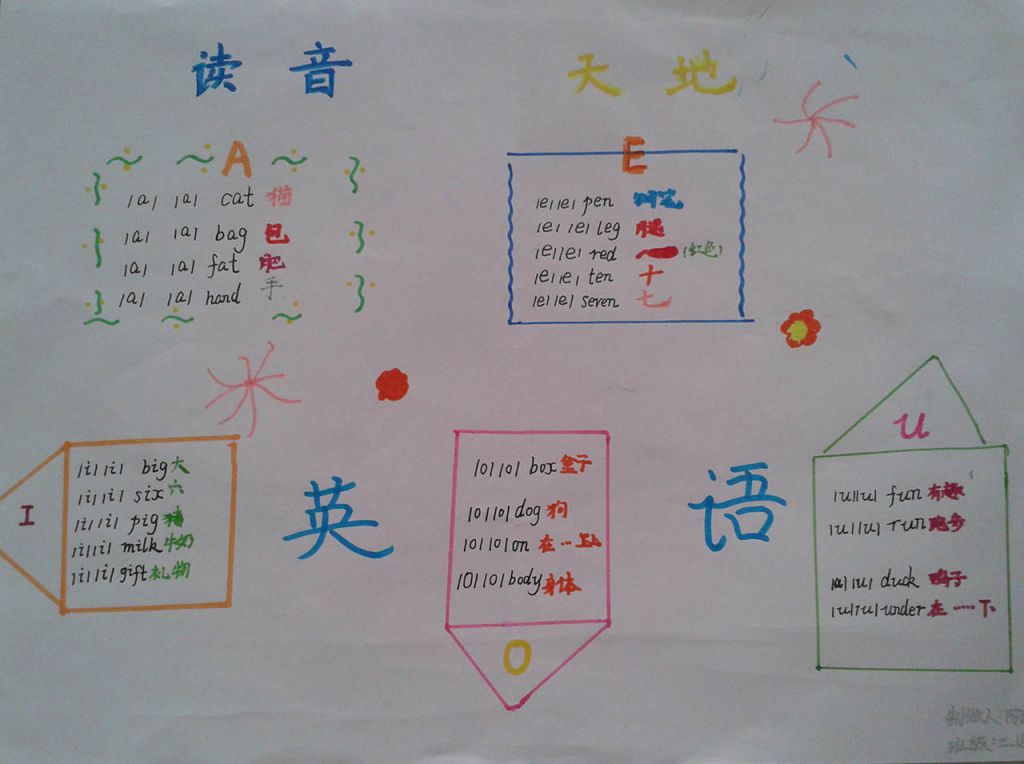 读音 天地
A
/a/ /a/ cat 猫
/a/ /a/ bag 包
/a/ /a/ fat 肥
/a/ /a/ hand 手
E
/e/ /e/ pen 钢笔
/e/ /e/ leg 腿
/e/ /e/ red (红色)
/e/ /e/ ten 十
/e/ /e/ seven 七
I
/i/ /i/ big 大
/i/ /i/ six 六
/i/ /i/ pig 猪
/i/ /i/ milk 牛奶
/i/ /i/ gift 礼物
英语
/o/ /o/ box 盒子
/o/ /o/ dog 狗
/o/ /o/ on 在…上
/o/ /o/ body 身体
O
U
/u/ /u/ fun 有趣
/u/ /u/ run 跑步
/u/ /u/ duck 鸭子
/u/ /u/ under 在……下
制做人:陈
班级: